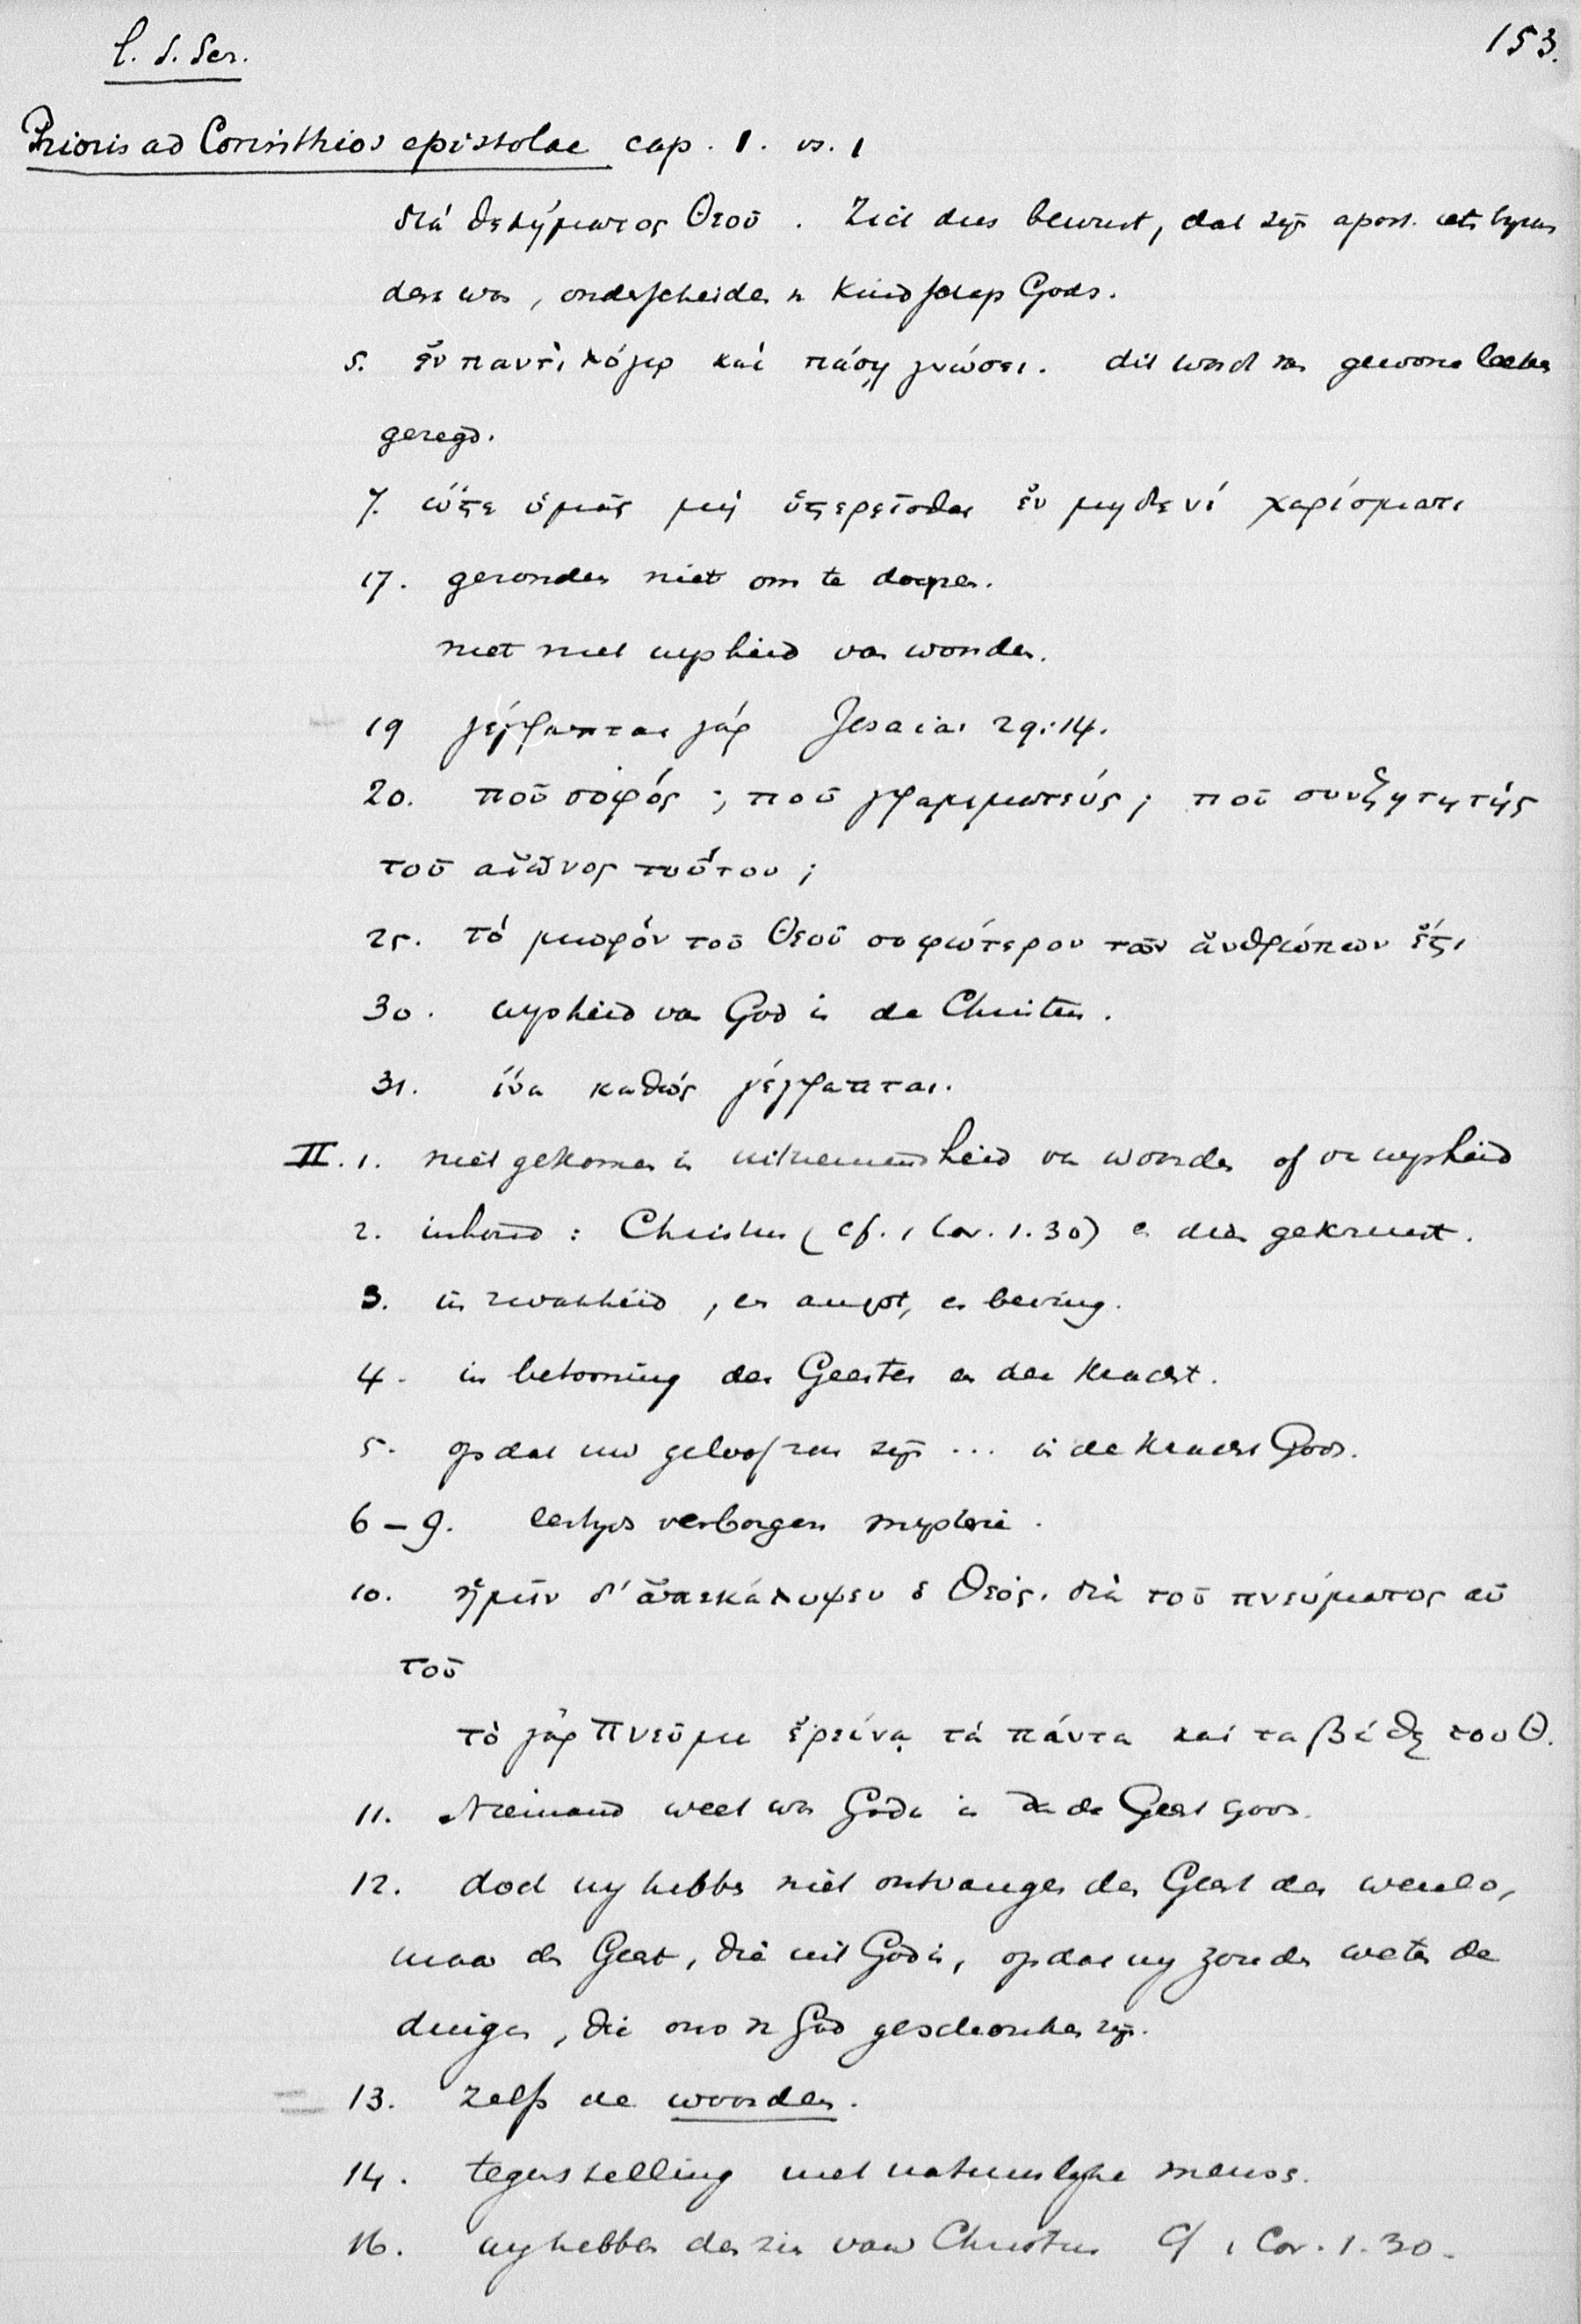 l. S. Scr.
153.
Prioris ad Corinthios epistolae cap. 1. vs. 1
διά θελήματος Θεοῦ. Zich dus bewust, dat zijn apost. iets
was, onderscheiden v. Kindschap Gods.
5. ἐν παντὶ λόγῳ καί πάσῃ γνώσει. dit werd van gewone
gezegd.
7. ὥστε ὑμᾶς μή ὑστερεῖσθαι ἐν μηδενί χαρίσματι
17. gezonden niet om te doopen.
niet met wysheid van woorden.
19 γέγραπται γάρ Jesaia 29:14.
20. ποῦ σοφός; ποῦ γραμματεύς; ποῦ συνζητητής
τοῦ αἰῶνος τούτου;
25. τό μωρόν τοῦ Θεοῦ σοφώτερον τῶν ἀνθρώπων ἐστι
30. wysheid van God is de Christus.
31. ἵνα καθώς γέγραπται.
II. 1. niet gekomen in uitnemendheid van woorden of van wysheid
2. inhoud: Christus (cf. 1 Cor. 1.30) en dien gekruist.
3. in zwakheid, en angst, en beving.
4. in betooning des Geestes en der kracht.
5. opdat uw geloof zou zijn ... in de kracht Gods.
6–9. eertyds verborgen mysterie.
10. ἡμῖν δ' ἀπεκάλυψεν ὁ Θεός. διὰ τοῦ πνεύματος αὐ
τοῦ
τὸ γὰρ πνεῦμα ἐρεύνᾳ τά πάντα καί τα βάθη του Θ.
11. Niemand weet wat Gods is dan de Geest Gods.
12. doch wy hebben niet ontvangen den Geest der wereld,
maar den Geest, die uit God is, opdat wy zouden weten de
dingen, die ons v. God geschonken zijn.
13. zelfs de woorden.
14. tegenstelling met natuurlyke mensch.
16. wy hebben den zin van Christus Cf 1 Cor. 1.30.